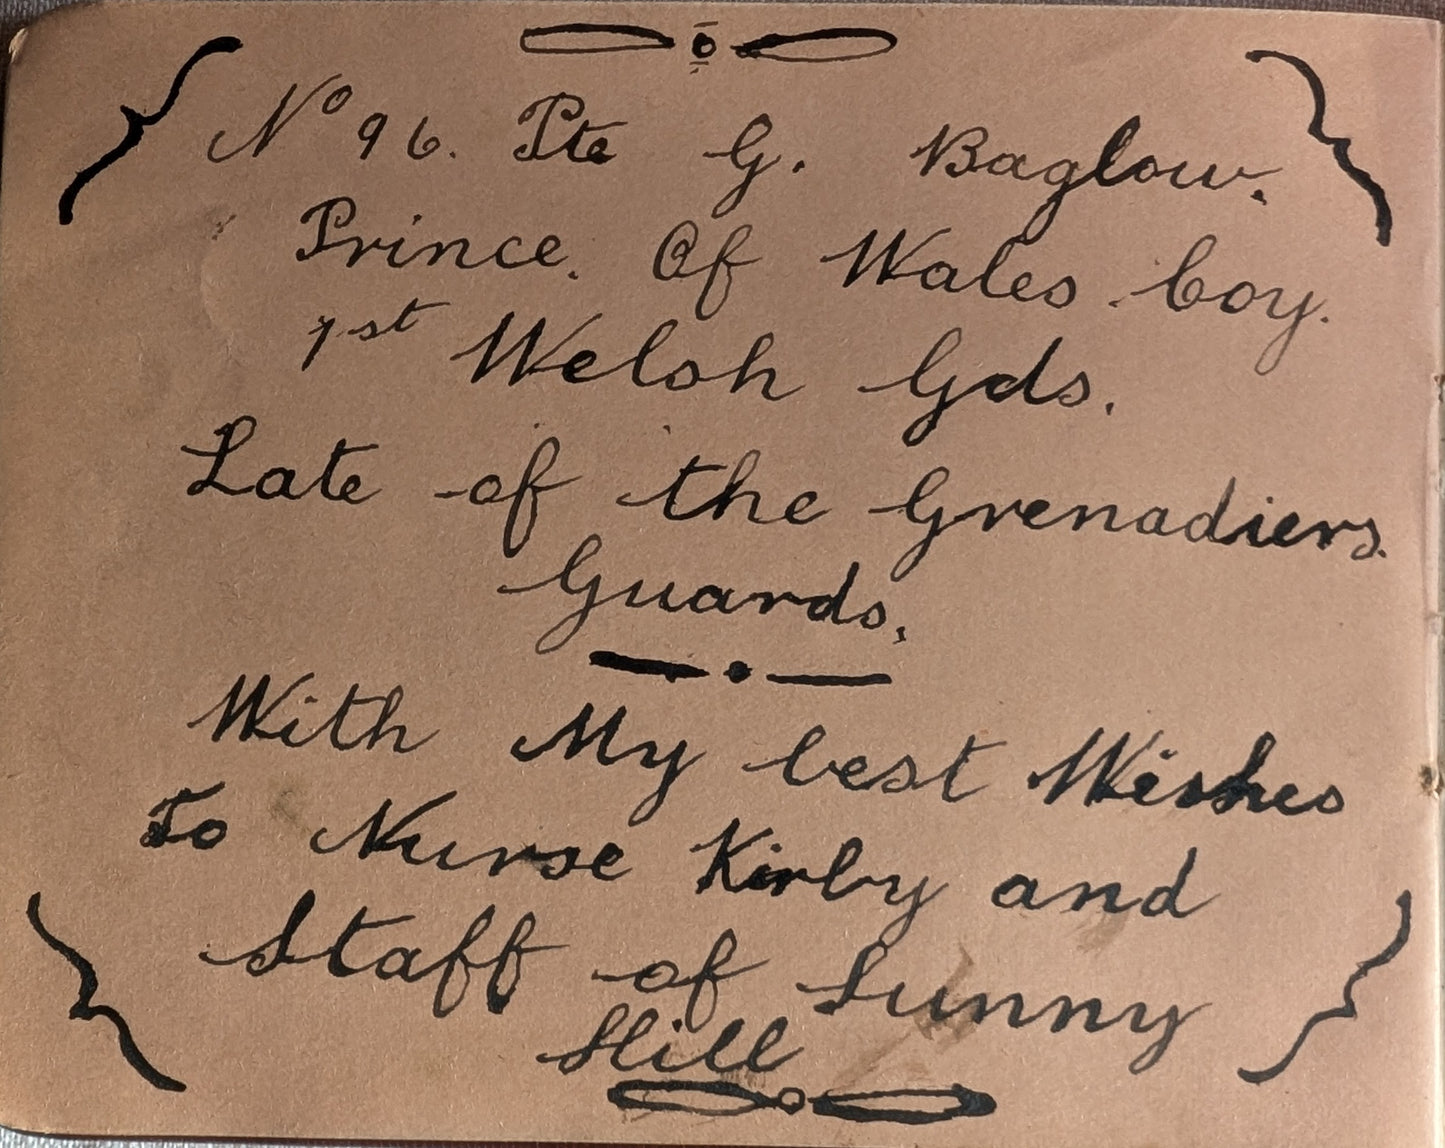 Nº 96. Pte G. Baglow.
Prince. Of Wales. Coy.
1st Welsh Gds.
Late of the Grenadiers.
Guards.
With My best Wishes
To Nurse Kirby and
Staff of Sunny
Hill